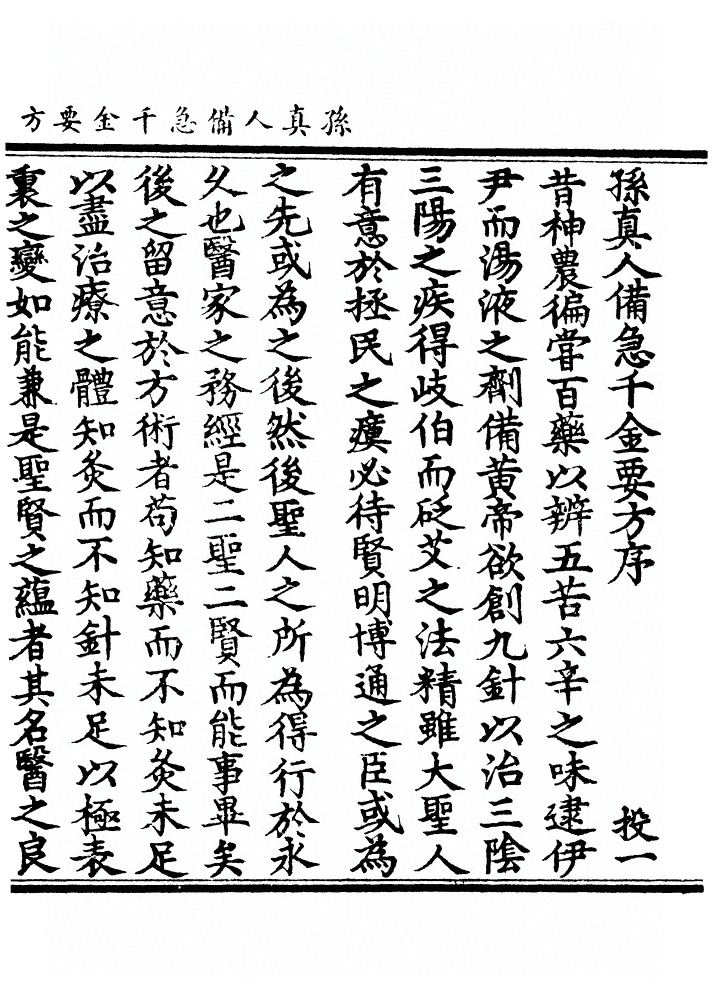 孫真人備急千金要方
孫真人備急千金要方序 投一
昔神農徧嘗百藥以辨五苦六辛之味逮伊
尹而湯液之劑備黃帝欲創九針以治三陰
三陽之疾得岐伯而砭艾之法精雖大聖人
有意於拯民之瘼必待賢明博通之臣或為
之先或為之後然後聖人之所為得行於永
久也醫家之務經是二聖二賢而能事畢矣
後之留意於方術者苟知藥而不知灸未足
以盡治療之體知灸而不知針未足以極表
裏之變如能兼是聖賢之蘊者其名醫之良